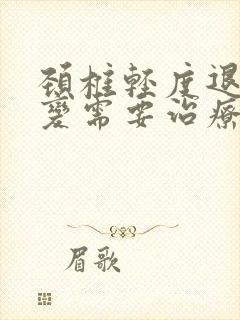 颈椎轻度退
变需要治疗
眉歌